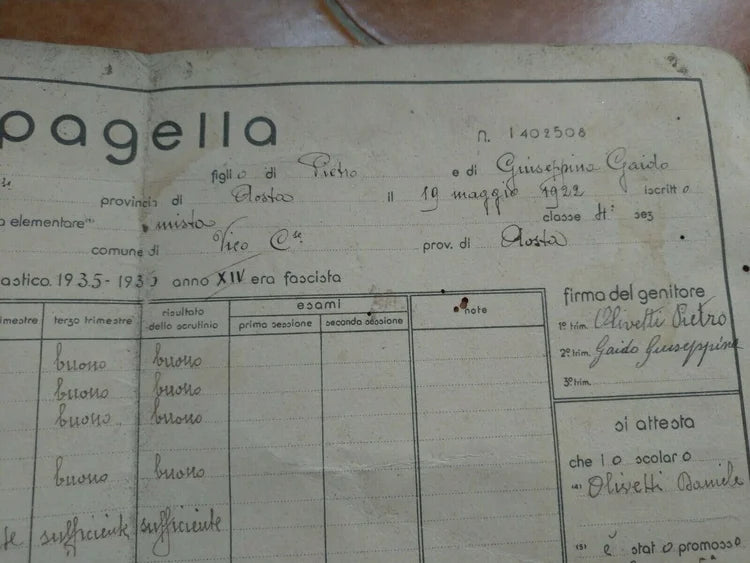 pagella
n. 1402508
figlio di Pietro e di Giuseppina Gaido
se provincia di Aosta il 19 maggio 1922 iscritto
a elementare mista classe 4ª sez
comune di Vico Cse prov. di Aosta
astico 1935-193 anno XIV era fascista
firma del genitore
1º trim. Olivetti Pietro
2º trim. Gaido Giuseppina
3º trim.
imestre terzo trimestre risultato dello scrutinio esami prima sessione seconda sessione note
buono buono
buono buono
buono buono
buono buono
te sufficiente sufficiente
si attesta
che lo scolaro
(4) Olivetti Daniele
(5) è stato promosso